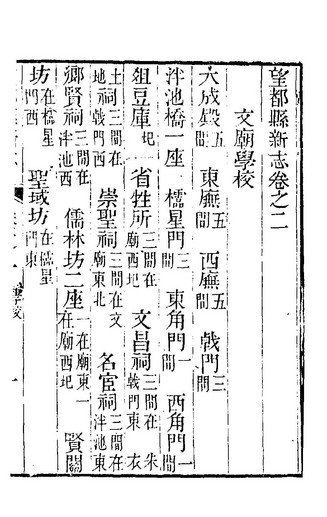 望都縣新志卷之二
文廟學校
大成殿五間 東廡五間 西廡五間 戟門三間
泮池橋一座 櫺星門三間 東角門一間 西角門一間
俎豆庫圮 省牲所三間在廟西圮 文昌祠三間在戟門東 朱衣
土地祠三間在戟門西 崇聖祠三間在文廟東北 名宦祠三間在泮池東
鄉賢祠三間在泮池西 儒林坊二座一在廟東一在廟西圮 賢關
坊在櫺星門西 聖域坊在櫺星門東
學校 一